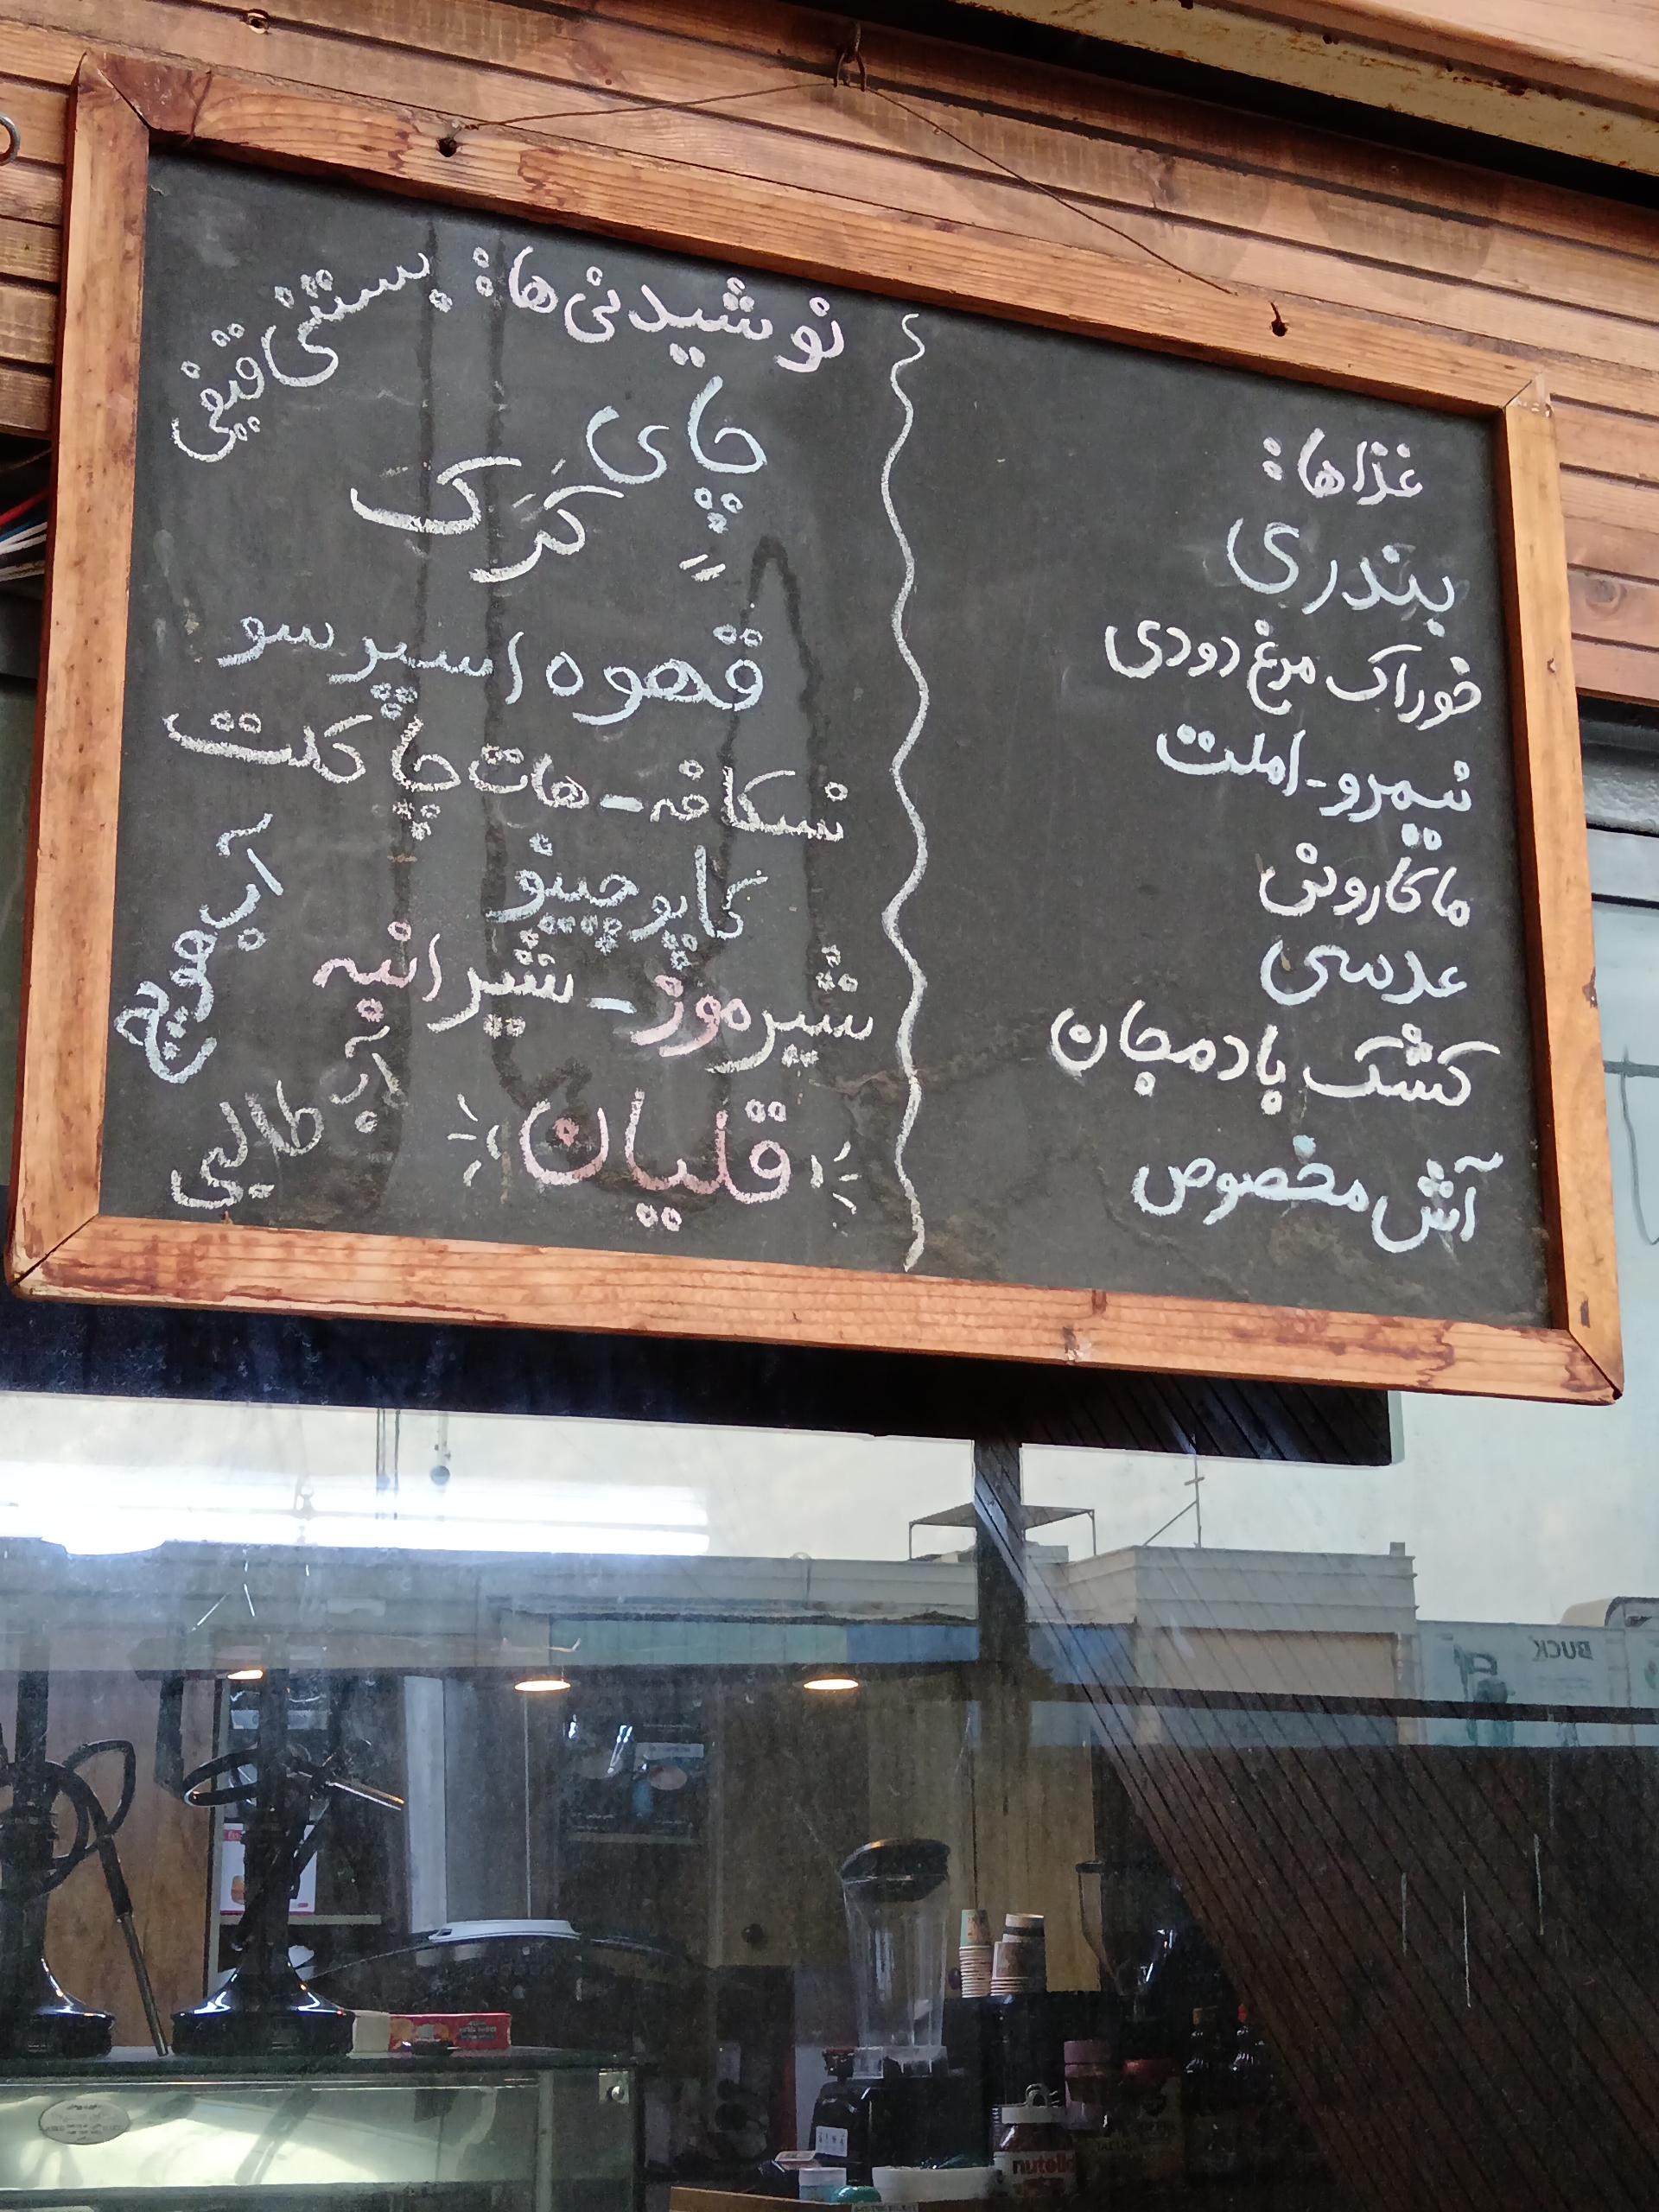 غذاها:
بندری
خوراک مرغ دودی
نیمرو - املت
ماکارونی
عدسی
کشک بادمجان
آش مخصوص
نوشیدنی‌ها:
چای
〃 کَرَک
قهوه اسپرسو
نسکافه - هات چاکلت
کاپوچینو
شیرموز - شیر انبه
قلیان
بستنی قیفی
آب هویج
آب طالبی
BUCK
nutella